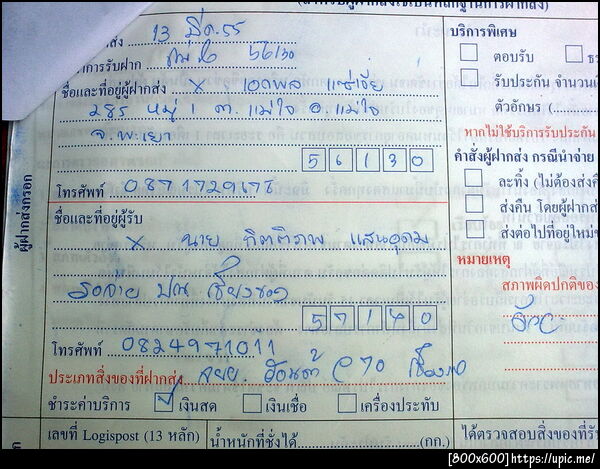 บริการพิเศษ
ส่ง 13 มี.ค. 55
ตอบรับ
การรับฝาก แม่ใจ 56130
รับประกัน จำนวนเ
ชื่อและที่อยู่ผู้ฝากส่ง X เอกพล แซ่เจีย
ตัวอักษร (
285 หมู่ 1 ต. แม่ใจ อ. แม่ใจ
หากไม่ใช้บริการรับประกัน
จ. พะเยา
คำสั่งผู้ฝากส่ง กรณีนำจ่าย
56130
ละทิ้ง (ไม่ต้องส่งคื
โทรศัพท์
ส่งคืน โดยผู้ฝากส่
ผู้ฝากส่งกรอก
ชื่อและที่อยู่ผู้รับ
ส่งต่อไปที่อยู่ใหม่ข
X นาย กิตติภพ แสนอุดม
หมายเหตุ
สภาพผิดปกติของ
รอจ่าย ปณ เชียงของ
57140
โทรศัพท์ 0824971011
ประเภทสิ่งของที่ฝากส่ง
ชำระค่าบริการ เงินสด เงินเชื่อ เครื่องประทับ
เลขที่ Logispost (13 หลัก) น้ำหนักที่ชั่งได้ (กก.) ได้ตรวจสอบสิ่งของที่รั
[800x600]https://upic.me/